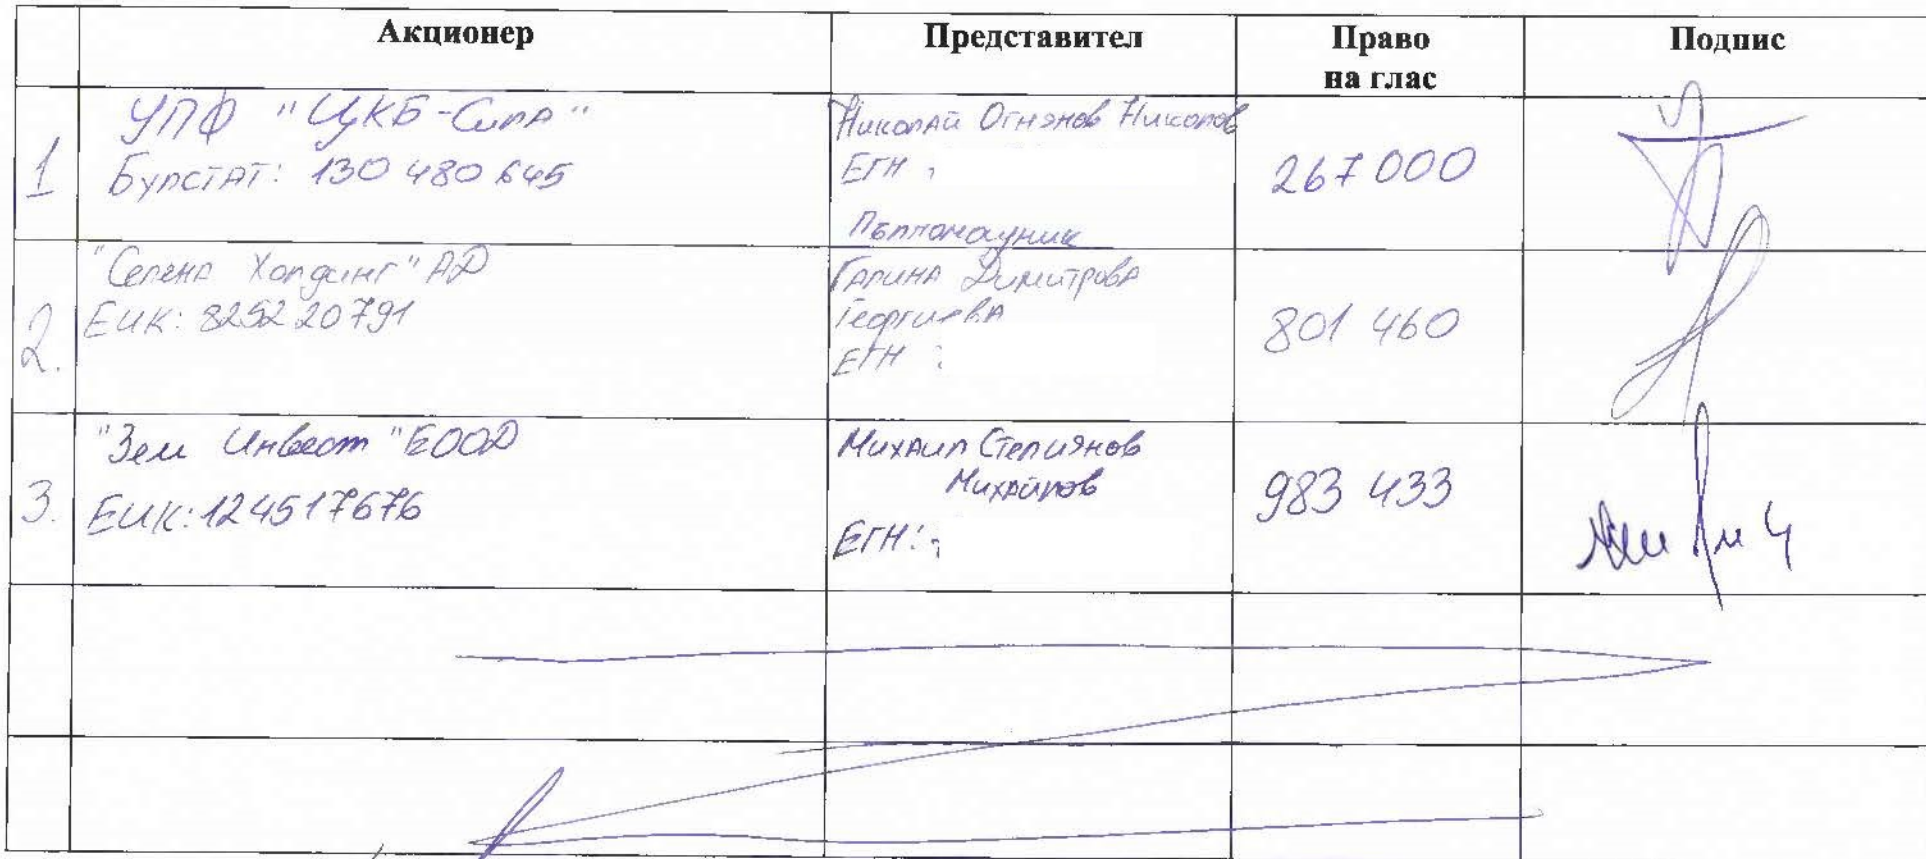 Акционер
Представител
Право
на глас
Подпис
1
УПФ "ЦКБ-Сила"
Булстат: 130 480 645
Николай Огнянов Николов
ЕГН
Пълномощник
267 000
2.
"Селена Холдинг" АД
ЕИК: 825220791
Галина Димитрова
Георгиева
ЕГН :
801 460
3.
"Зем Инвест" ЕООД
ЕИК: 124517676
Михаил Стелиянов
Михайлов
ЕГН:
983 433